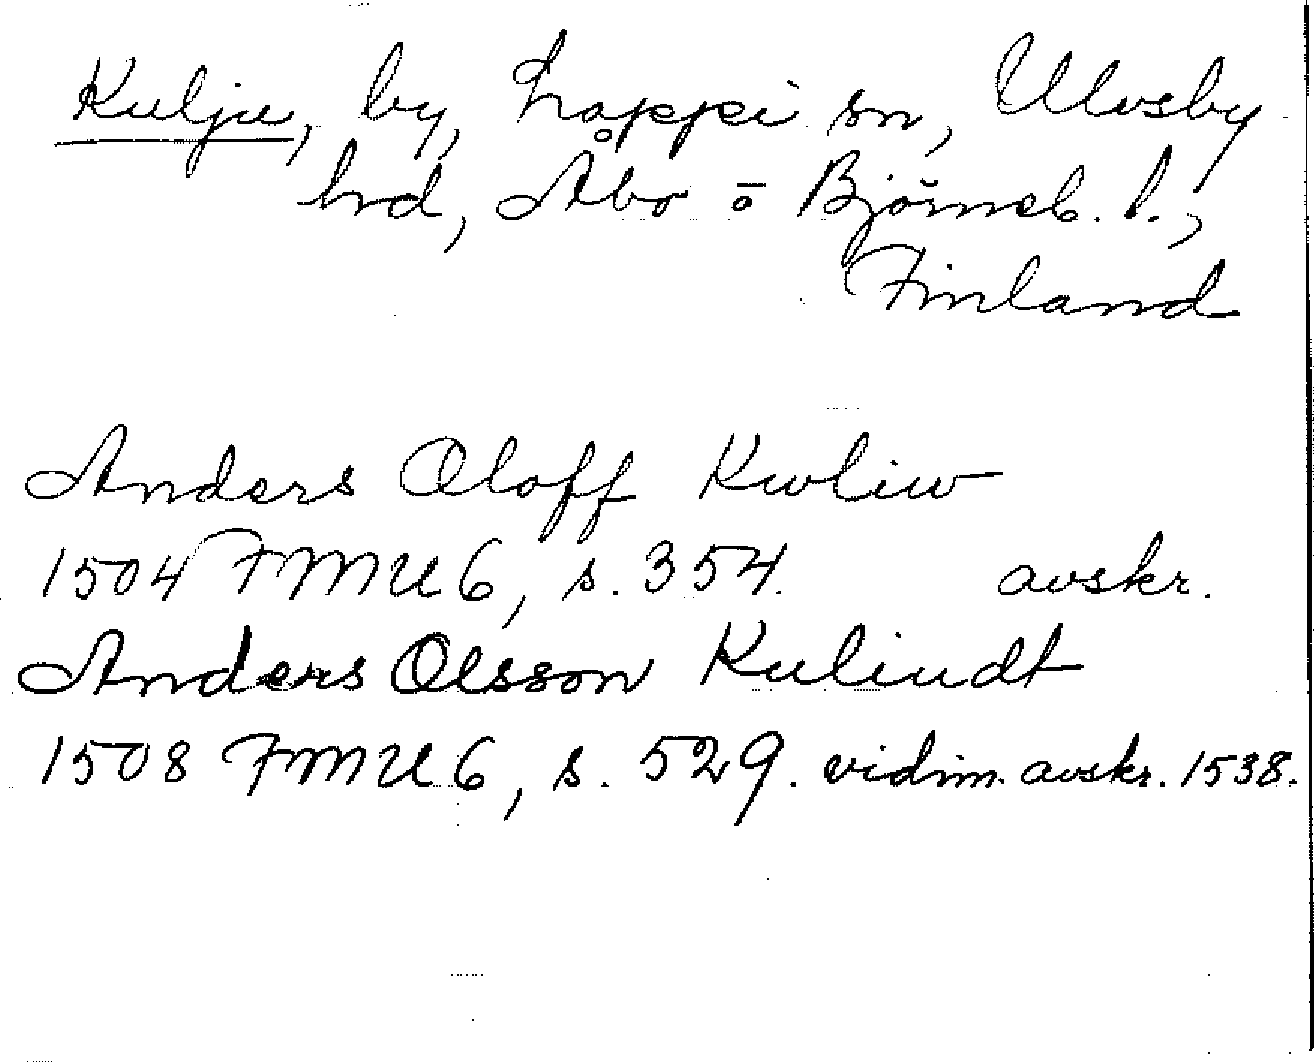 Kulju, by, Lappi sn, Ulvsby
hrd, Åbo o Björneb. l.,
Finland
Anders Oloff Kwliw
1504 FMU 6, s. 354. avskr.
Anders Olsson Kuliudt
1508 FMU 6, s. 529. vidim. avskr. 1538.